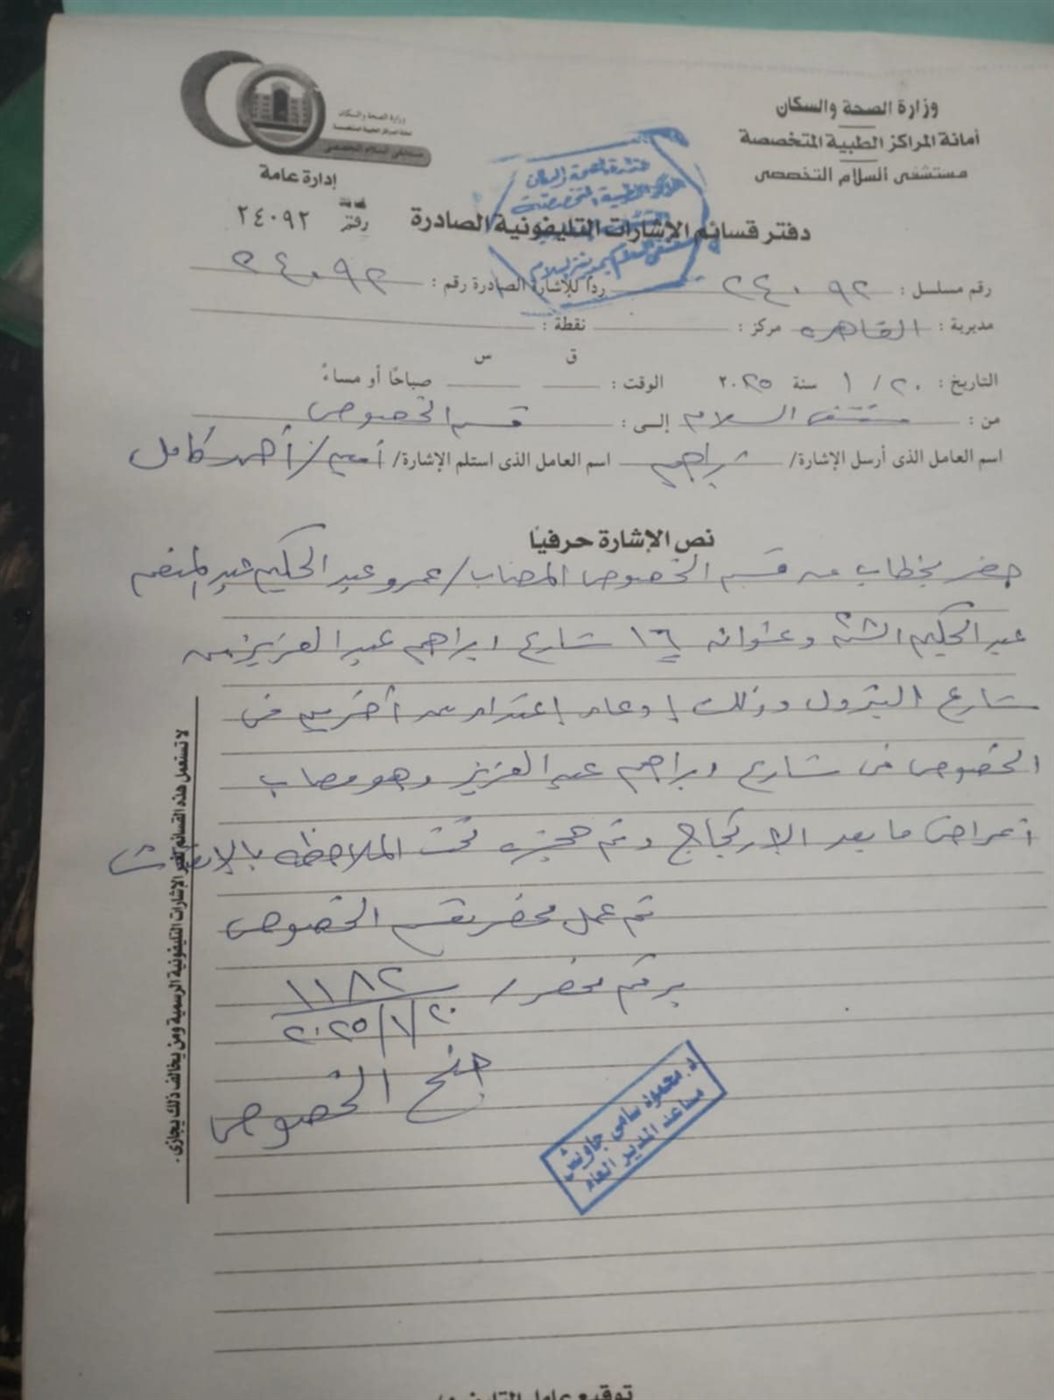 وزارة الصحة والسكان
أمانة المراكز الطبية المتخصصة
مستشفى السلام التخصصى
وزارة الصحة والسكان
أمانة المراكز الطبية المتخصصة
مستشفى السلام التخصصى
إدارة عامة
دفتر قسائم الإشارات التليفونية الصادرة
رقم ٢٤٠٩٢
رقم مسلسل : ٢٤٠٩٢ رداً للإشارة الصادرة رقم : ٢٤٠٩٢
مديرية : القاهره مركز : نقطة :
التاريخ : ٢٠ / ١ سنة ٢٠٢٥ الوقت : ق س صباحًا أو مساءً
من : مستشفى السلام إلى : قسم الخصوص
اسم العامل الذى أرسل الإشارة/ ابراهيم اسم العامل الذى استلم الإشارة/ أمين / أحمد كامل
نص الإشارة حرفيًا
حضر بخطاب من قسم الخصوص المصاب / عمرو عبد الحكيم عبد المنعم
عبد الحكيم وعنوانه ١٦ شارع ابراهيم عبد العزيز من
شارع البترول وذلك إدعاء إعتداء من أخرين فى
الخصوص فى شارع ابراهيم عبد العزيز وهو مصاب
أعراض ما بعد الإرتجاج وتم حجزه تحت الملاحظه
تم عمل محضر بقسم الخصوص
برقم محضر / ١١٨٢
٢٠٢٥/١/٢٠
جنح الخصوص
د. محمود سامى جاويش
مساعد المدير العام
لا تستعمل هذه القسائم لغير الإشارات التليفونية الرسمية ومن يخالف ذلك يجازى .